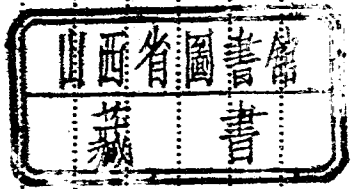 山西省圖書館
藏書